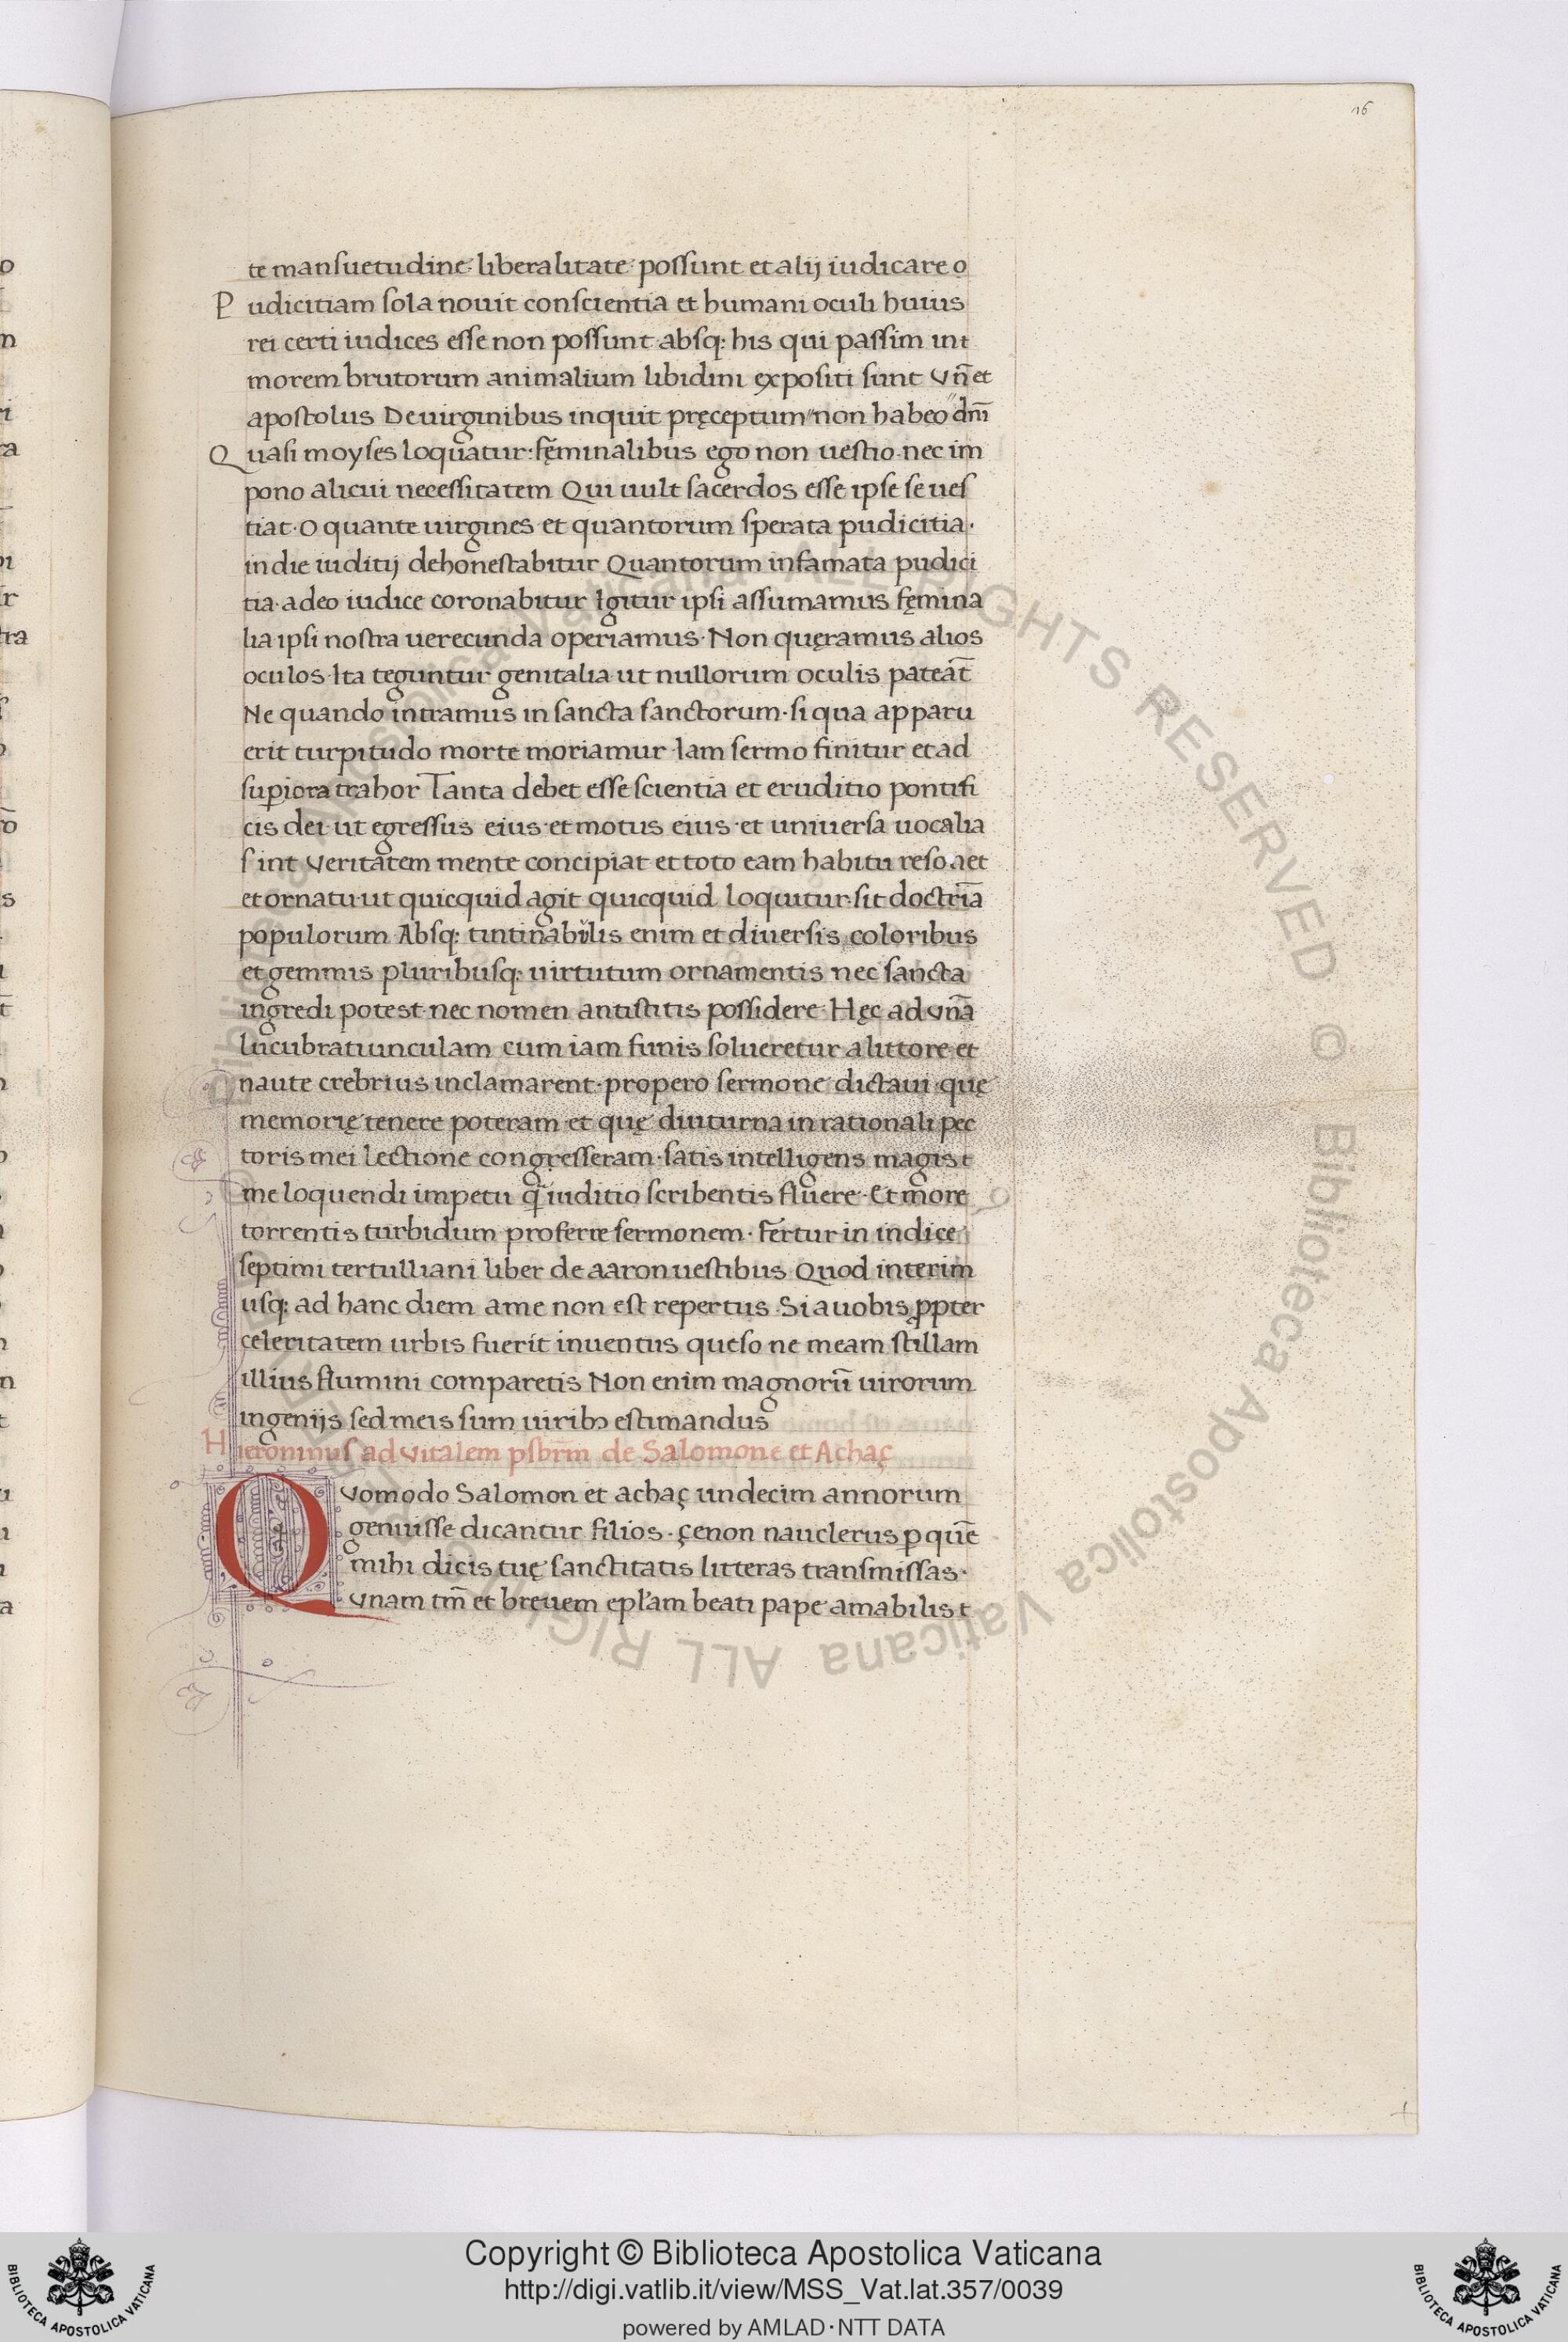 16
te mansuetudine· liberalitate· possunt et alij iudicare o
P udicitiam sola novit conscientia et humani oculi huius
rei certi iudices esse non possunt absq: his qui passim int
morem brutorum animalium libidini expositi sunt vn̄ et
apostolus De uirginibus inquit pręceptum〃non habeo〃dn̄i
Q uasi moyses loquatur: fęminalibus ego non uestio· nec im
pono alicui necessitatem Qui uult sacerdos esse ipse se ues
tiat· O quante uirgines et quantorum sperata pudicitia·
in die iuditij dehonestabitur Quantorum infamata pudici
tia· a deo iudice coronabitur Igitur ipsi assumamus fęmina
lia ipsi nostra uerecunda operiamus· Non quęramus alios
oculos· Ita teguntur genitalia ut nullorum oculis pateāt
Ne quando intramus in sancta sanctorum· si qua apparu
erit turpitudo morte moriamur· Iam sermo finitur et ad
suꝑiora trahor Tanta debet esse scientia et eruditio pontifi
cis dei· ut egressus eius· et motus eius· et universa uocalia
sint veritatem mente concipiat et toto eam habitu resonet
et ornatu· ut quicquid agit quicquid loquitur· sit doctrīa
populorum Absq: tintinabulis enim et diversis coloribus
et gemmis pluribusq: uirtutum ornamentis nec sancta
ingredi potest· nec nomen antistitis possidere· Hęc ad vnā
lucubratiunculam cum iam funis solueretur a littore et
naute crebrius inclamarent· propero sermone dictaui· quę
memorię tenere poteram· et quę diuturna in rationali pec
toris mei lectione congresseram· satis intelligens magis t
me loquendi impetu q̄ iuditio scribentis fluere· Et more
torrentis turbidum proferre sermonem· Fertur in indice
septimi tertulliani liber de aaron uestibus Quod interim
usq: ad hanc diem a me non est repertus· Si a uobis ꝓpter
celeritatem urbis fuerit inventus queso ne meam stillam
illius flumini comparetis Non enim magnorū uirorum
ingenijs sed meis sum uiribꝫ estimandus
Hieronimus ad vitalem psbr̄m de Salomone et Achaç
Quomodo Salomon et achaç undecim annorum
genuisse dicantur filios· çenon nauclerus ꝑ quē
mihi dicis tuę sanctitatis litteras transmissas·
vnam tm̄ et brevem epl̄am beati pape amabilis t
Copyright © Biblioteca Apostolica Vaticana
http://digi.vatlib.it/view/MSS_Vat.lat.357/0039
powered by AMLAD·NTT DATA